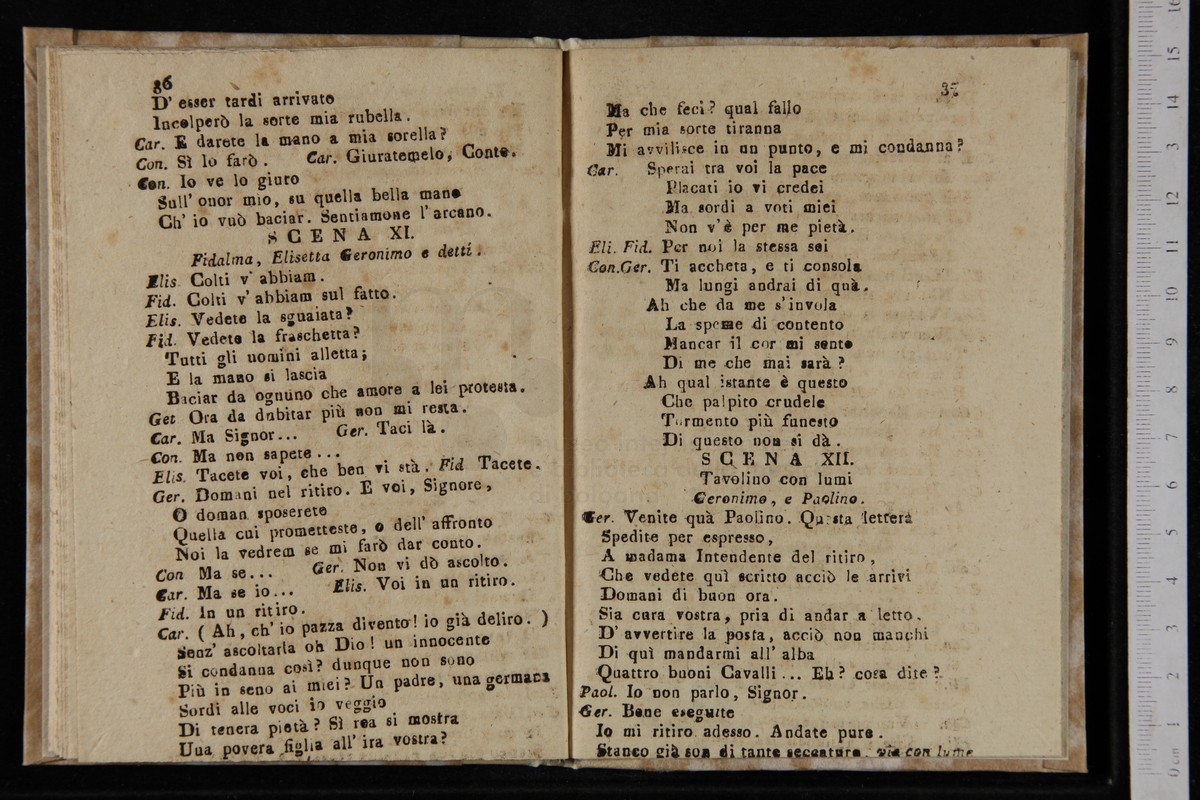 36
D' esser tardi arrivato
Incolperò la sorte mia rubella.
Car. E darete la mano a mia sorella?
Con. Sì lo farò. Car. Giuratemelo, Conte.
Con. Io ve lo giuro
Sull' onor mio, su quella bella mano
Ch' io vuò baciar. Sentiamone l'arcano.
SCENA XI.
Fidalma, Elisetta Geronimo e detti.
Elis. Colti v' abbiam.
Fid. Colti v' abbiam sul fatto.
Elis. Vedete la sguaiata?
Fid. Vedete la fraschetta?
Tutti gli uomini alletta;
E la mano si lascia
Baciar da ognuno che amore a lei protesta.
Get Ora da dubitar più non mi resta.
Car. Ma Signor... Ger. Taci là.
Con. Ma non sapete...
Elis. Tacete voi, che ben vi stà. Fid Tacete.
Ger. Domani nel ritiro. E voi, Signore,
O doman sposerete
Quella cui prometteste, o dell' affronto
Noi la vedrem se mi farò dar conto.
Con Ma se... Ger. Non vi dò ascolto.
Car. Ma se io... Elis. Voi in un ritiro.
Fid. In un ritiro.
Car. (Ah, ch' io pazza divento! io già deliro.)
Senz' ascoltarla oh Dio! un innocente
Si condanna così? dunque non sono
Più in seno ai miei? Un padre, una germana
Sordi alle voci io veggio
Di tenera pietà? Sì rea si mostra
Una povera figlia all' ira vostra?
37
Ma che feci? qual fallo
Per mia sorte tiranna
Mi avvilisce in un punto, e mi condanna?
Car. Sperai tra voi la pace
Placati io vi credei
Ma sordi a voti miei
Non v'è per me pietà.
Eli. Fid. Per noi la stessa sei
Con.Ger. Ti accheta, e ti consola
Ma lungi andrai di quà.
Ah che da me s'invola
La speme di contento
Mancar il cor mi sento
Di me che mai sarà?
Ah qual istante è questo
Che palpito crudele
Tormento più funesto
Di questo non si dà.
SCENA XII.
Tavolino con lumi
Geronimo, e Paolino.
Ger. Venite quà Paolino. Questa letterà
Spedite per espresso,
A madama Intendente del ritiro,
Che vedete quì scritto acciò le arrivi
Domani di buon ora.
Sia cura vostra, pria di andar a letto.
D' avvertire la posta, acciò non manchi
Di quì mandarmi all' alba
Quattro buoni Cavalli... Eh? cosa dite?
Paol. Io non parlo, Signor.
Ger. Bene eseguite
Io mi ritiro adesso. Andate pure.
Stanco già son di tante seccature. via con lume